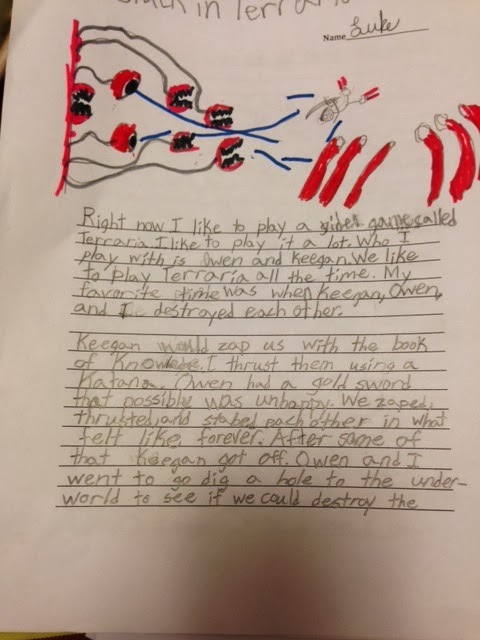 Stuck in Terraria
Name Luke
Right now I like to play a video game called
Terraria. I like to play it a lot. Who I
play with is Owen and Keegan. We like
to play Terraria all the time. My
favorite time was when Keegan, Owen,
and I destroyed each other.
Keegan would zap us with the book
of Knowledge. I thrust them using a
Katana. Owen had a gold sword
that possible was unhappy. We zaped,
thrusted, and stabed each other in what
felt like, forever. After some of
that Keegan got off. Owen and I
went to go dig a hole to the under-
world to see if we could destroy the